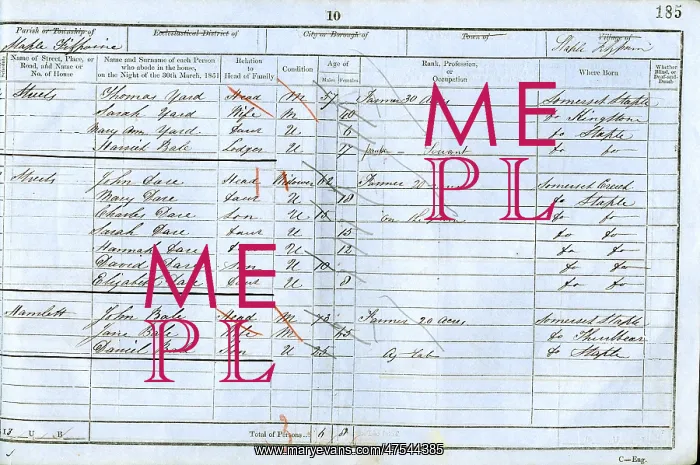 10
185
Parish or Township of
Ecclesiastical District of
City or Borough of
Town of
Village of
Staple Fitzpaine
Name of Street, Place, or Road, and Name or No. of House
Name and Surname of each Person who abode in the house, on the Night of the 30th March, 1851
Relation to Head of Family
Condition
Age of
Males
Females
Rank, Profession, or Occupation
Where Born
Whether Blind, or Deaf-and-Dumb
Streets Thomas Yard Head M 57 Farmer 30 Acres Somerset Staple
Sarah Yard Wife M 60 do Kingston
Mary Ann Yard Daur U 6 do Staple
Harriet Bale Lodger U 77 do do
Streets John Dare Head Widower 62 Farmer 20 Somerset Creech
Mary Dare Daur U 18 do Staple
Charles Dare Son U do do
Sarah Dare Daur U 15 do do
Hannah Dare U 12 do do
David Dare Son U 10 do do
Elizabeth Dare Daur U 8 do do
Hamlett John Bale Head M 73 Farmer 20 Acres Somerset Staple
Jane Bale Wife M 65 do Thurlbear
Daniel Bale Son U 25 Ag Lab do Staple
ME
PL
ME
PL
U B
Total of Persons 6 8
C—Eng.
www.maryevans.com/47544385